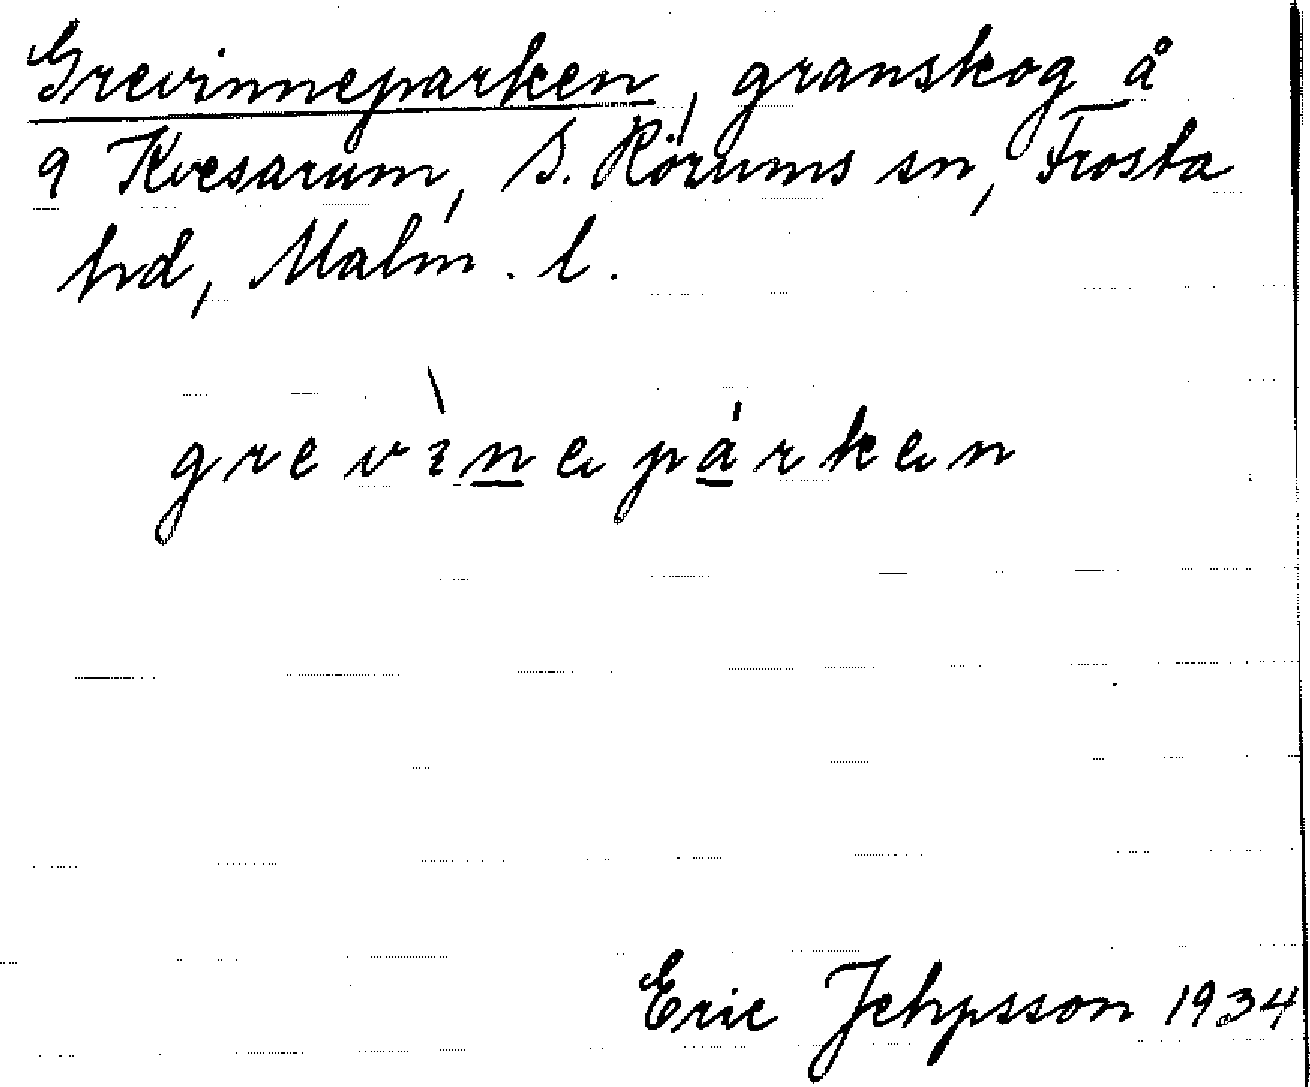 Grevinneparken, granskog å
9 Kvesarum, S. Rörums sn, Frosta
hrd, Malm. l.
grevinepárken
Eric Jehpsson 1934